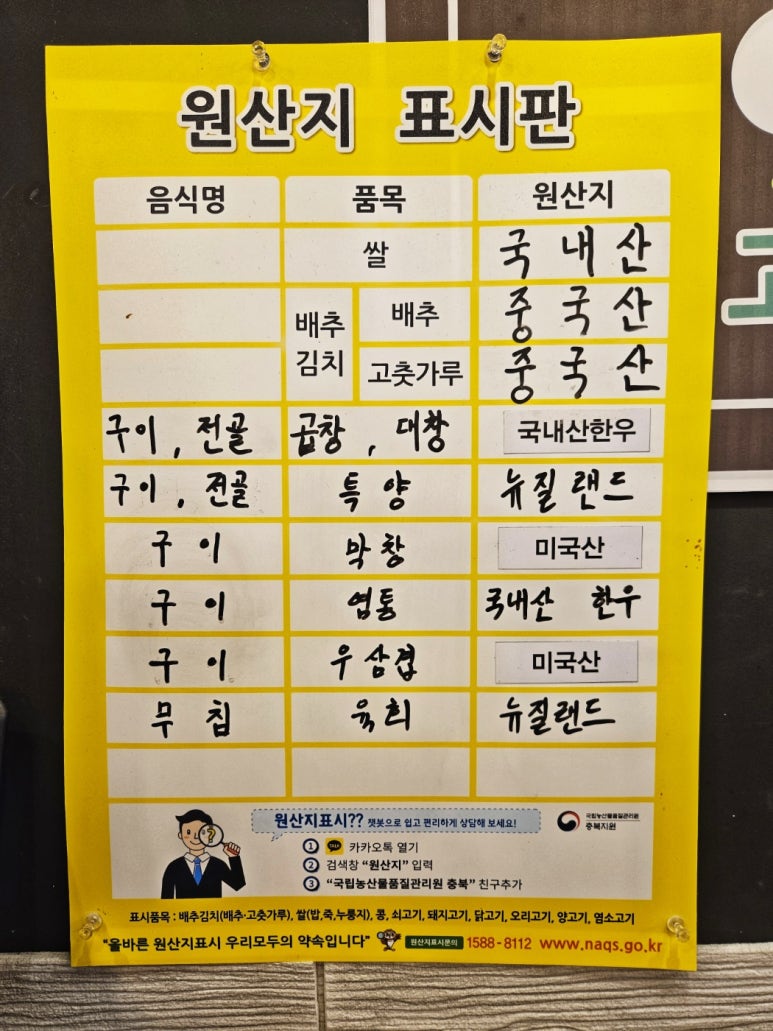 원산지 표시판
음식명 품목 원산지
쌀 국내산
배추김치 배추 중국산
고춧가루 중국산
구이, 전골 곱창, 대창 국내산한우
구이, 전골 특양 뉴질랜드
구이 막창 미국산
구이 염통 국내산 한우
구이 우삼겹 미국산
무침 육회 뉴질랜드
원산지표시?? 챗봇으로 쉽고 편리하게 상담해 보세요!
국립농산물품질관리원
충북지원
1 TALK 카카오톡 열기
2 검색창 "원산지" 입력
3 "국립농산물품질관리원 충북" 친구추가
표시품목 : 배추김치(배추·고춧가루), 쌀(밥,죽,누룽지), 콩, 쇠고기, 돼지고기, 닭고기, 오리고기, 양고기, 염소고기
"올바른 원산지표시 우리모두의 약속입니다" 원산지표시문의 1588-8112 www.naqs.go.kr